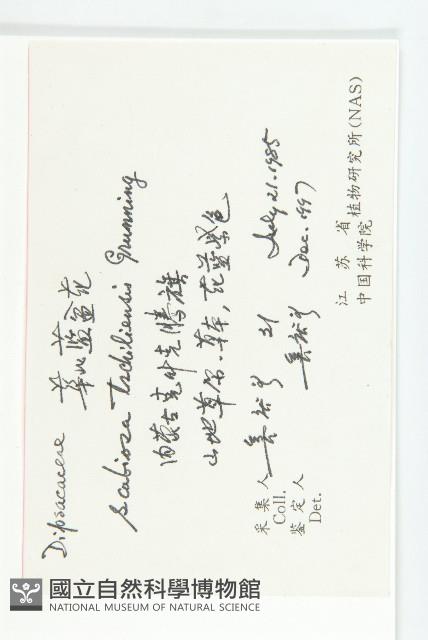 Dipsacaceae 华北蓝盆花
Scabiosa tschiliensis Grunning
内蒙古克什克腾旗
山地草原.草本,花蓝紫色
采集人
Coll. 21 July 21.1985
鉴定人
Det. Dec.1997
江苏省植物研究所(NAS)
中国科学院
國立自然科學博物館
NATIONAL MUSEUM OF NATURAL SCIENCE